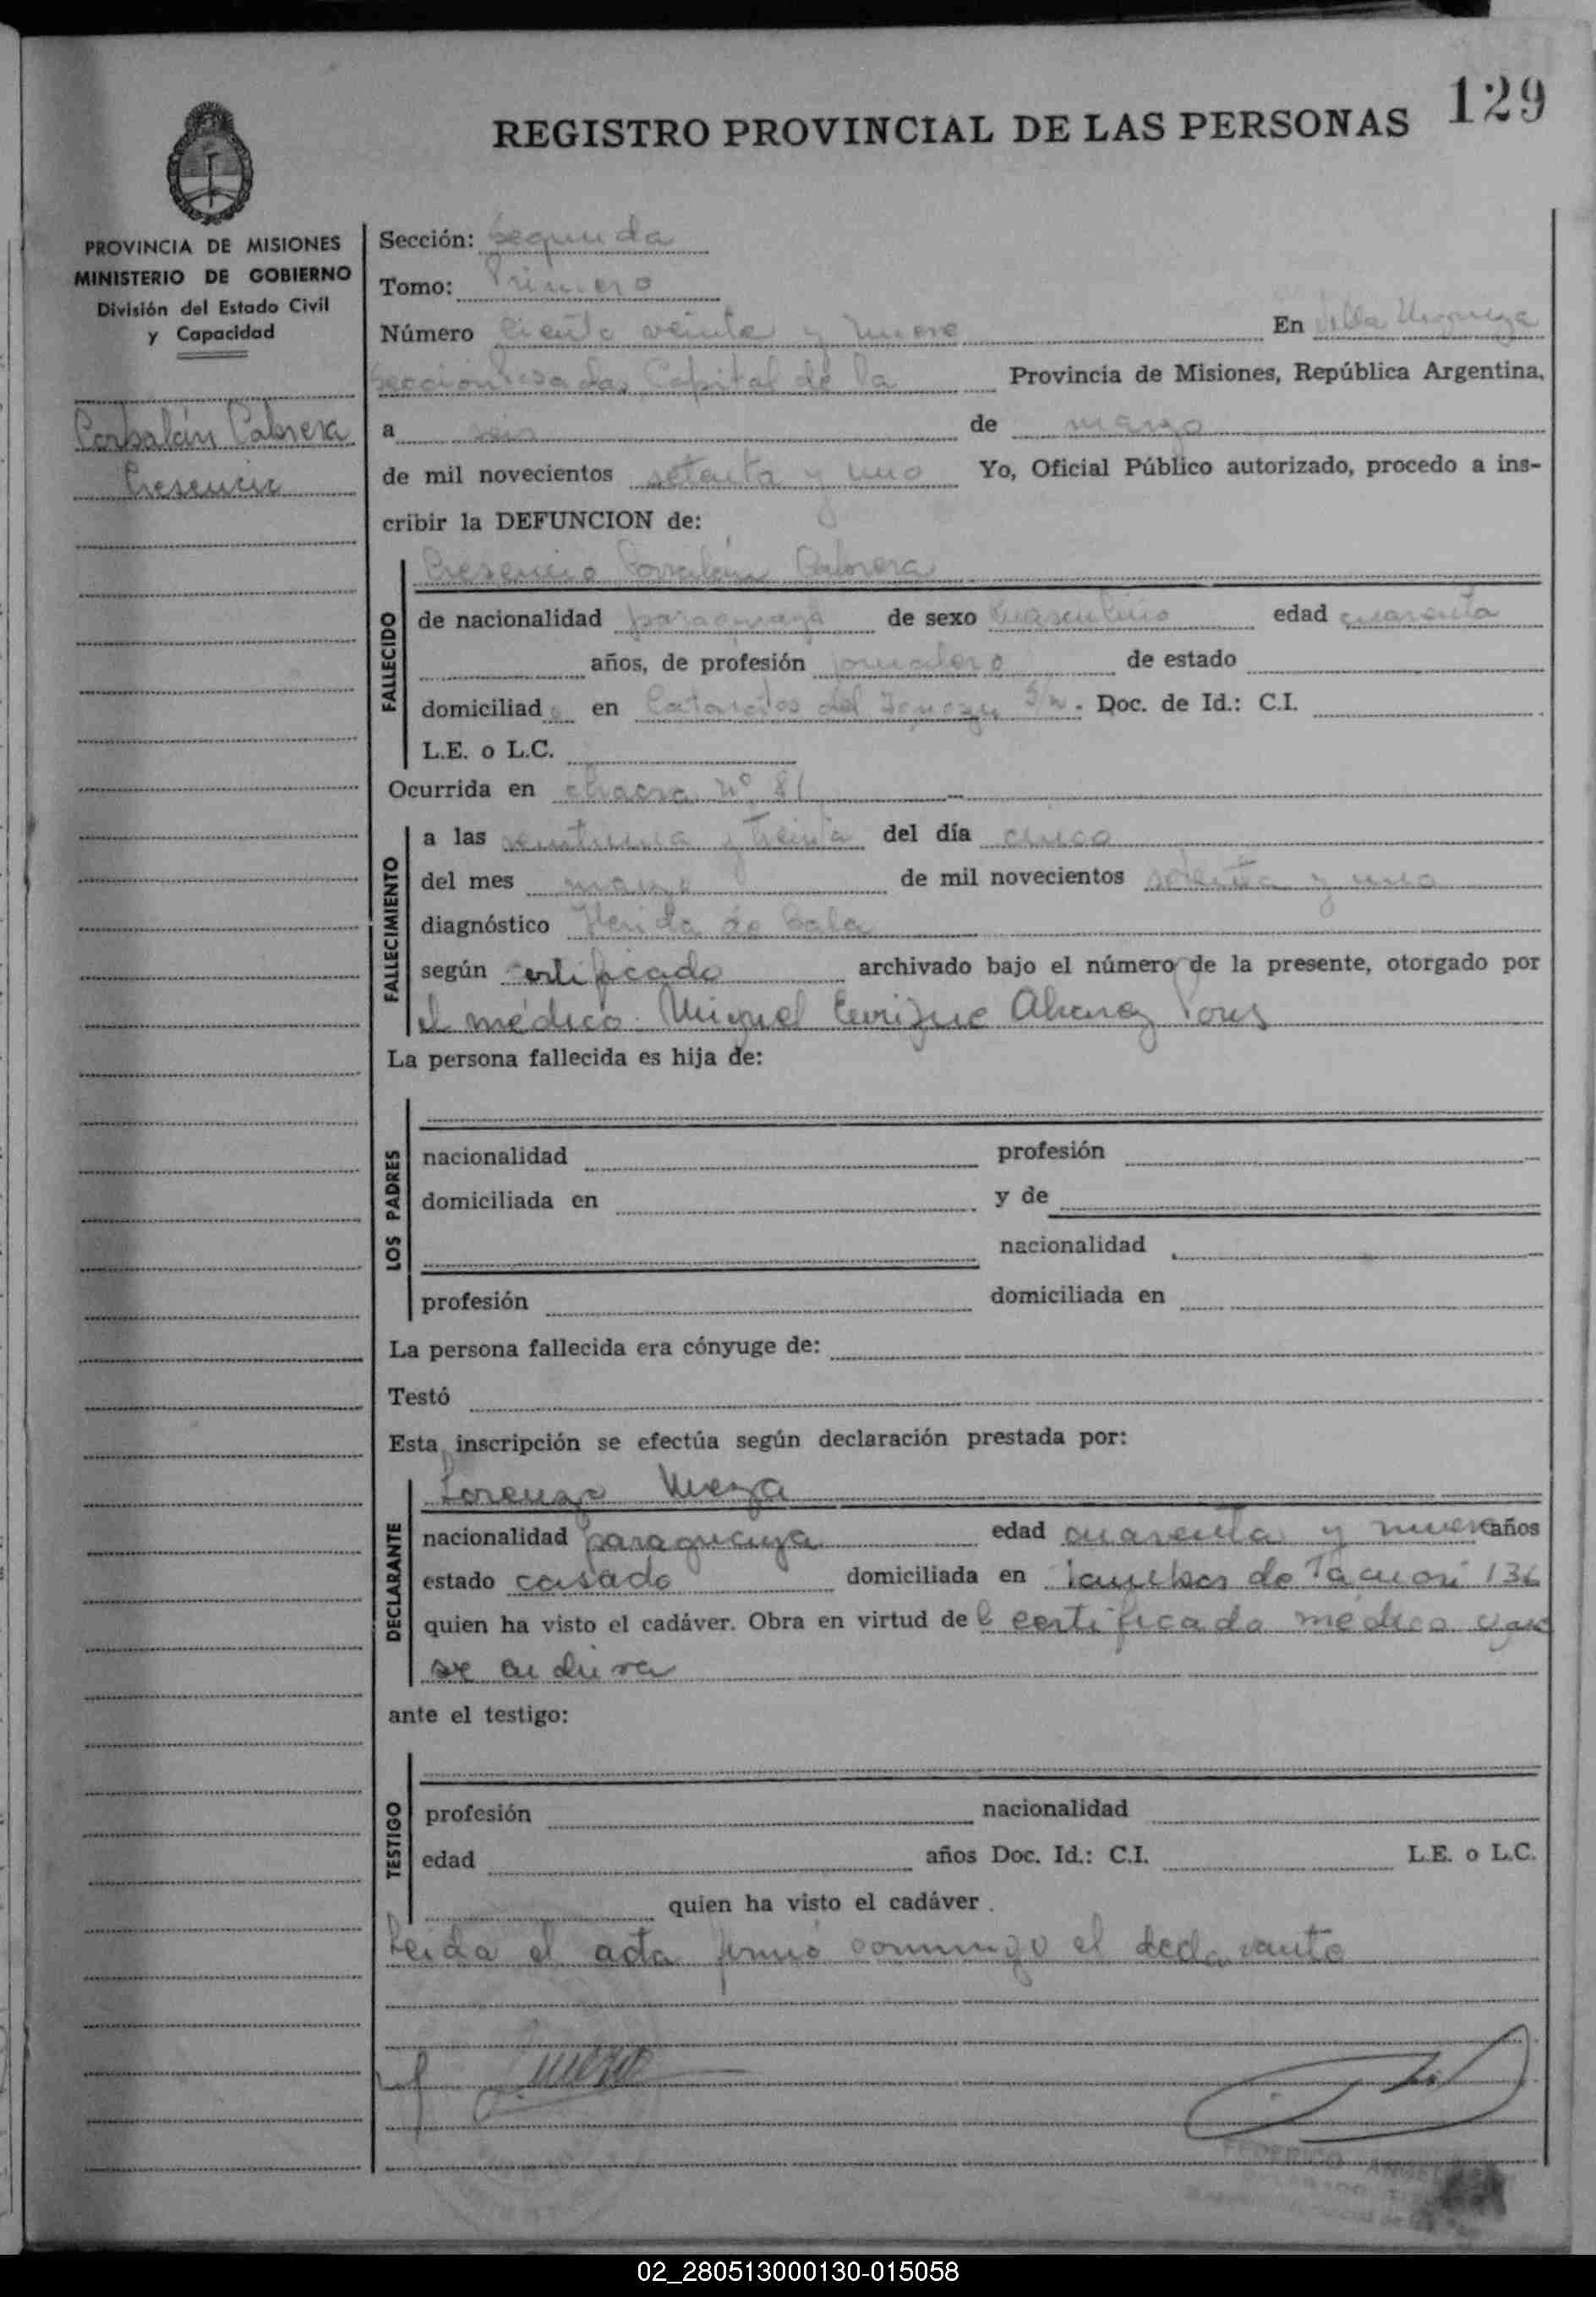 129
REGISTRO PROVINCIAL DE LAS PERSONAS
PROVINCIA DE MISIONES
MINISTERIO DE GOBIERNO
División del Estado Civil
y Capacidad
Corbalán Cabrera
Cresencio
Sección: Segunda
Tomo: Primero
Número Ciento veinte y nueve En Villa Urquiza
Posadas Capital de la Provincia de Misiones, República Argentina,
a seis de marzo
de mil novecientos setenta y uno Yo, Oficial Público autorizado, procedo a ins-
cribir la DEFUNCION de:
FALLECIDO
Cresencio Corvalán Cabrera
de nacionalidad paraguaya de sexo masculino edad cuarenta
años, de profesión jornalero de estado
domiciliado en Cataratas del Iguazu S/n. Doc. de Id.: C.I.
L.E. o L.C.
Ocurrida en chacra nº 81
FALLECIMIENTO
a las veintiuna y treinta del día cinco
del mes marzo de mil novecientos setenta y uno
diagnóstico Herida de bala
según certificado archivado bajo el número de la presente, otorgado por
el médico Miguel Enrique Alvarez Pons
La persona fallecida es hija de:
LOS PADRES
nacionalidad profesión
domiciliada en y de
nacionalidad
profesión domiciliada en
La persona fallecida era cónyuge de:
Testó
Esta inscripción se efectúa según declaración prestada por:
DECLARANTE
Lorenzo Meza
nacionalidad paraguaya edad cuarenta y nueve años
estado casado domiciliada en de Tacuari 136
quien ha visto el cadáver. Obra en virtud del certificado médico que
se archiva
ante el testigo:
TESTIGO
profesión nacionalidad
edad años Doc. Id.: C.I. L.E. o L.C.
quien ha visto el cadáver.
Leida el acta firmó conmigo el declarante
FEDERICO
02_280513000130-015058